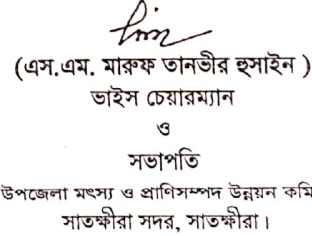 (এস.এম. মারুফ তানভীর হুসাইন )
ভাইস চেয়ারম্যান
ও
সভাপতি
উপজেলা মৎস্য ও প্রাণিসম্পদ উন্নয়ন কমি
সাতক্ষীরা সদর, সাতক্ষীরা।